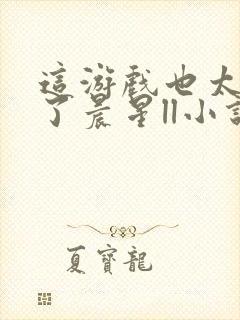 這游戲也太
了晨星||小說
夏寶龍